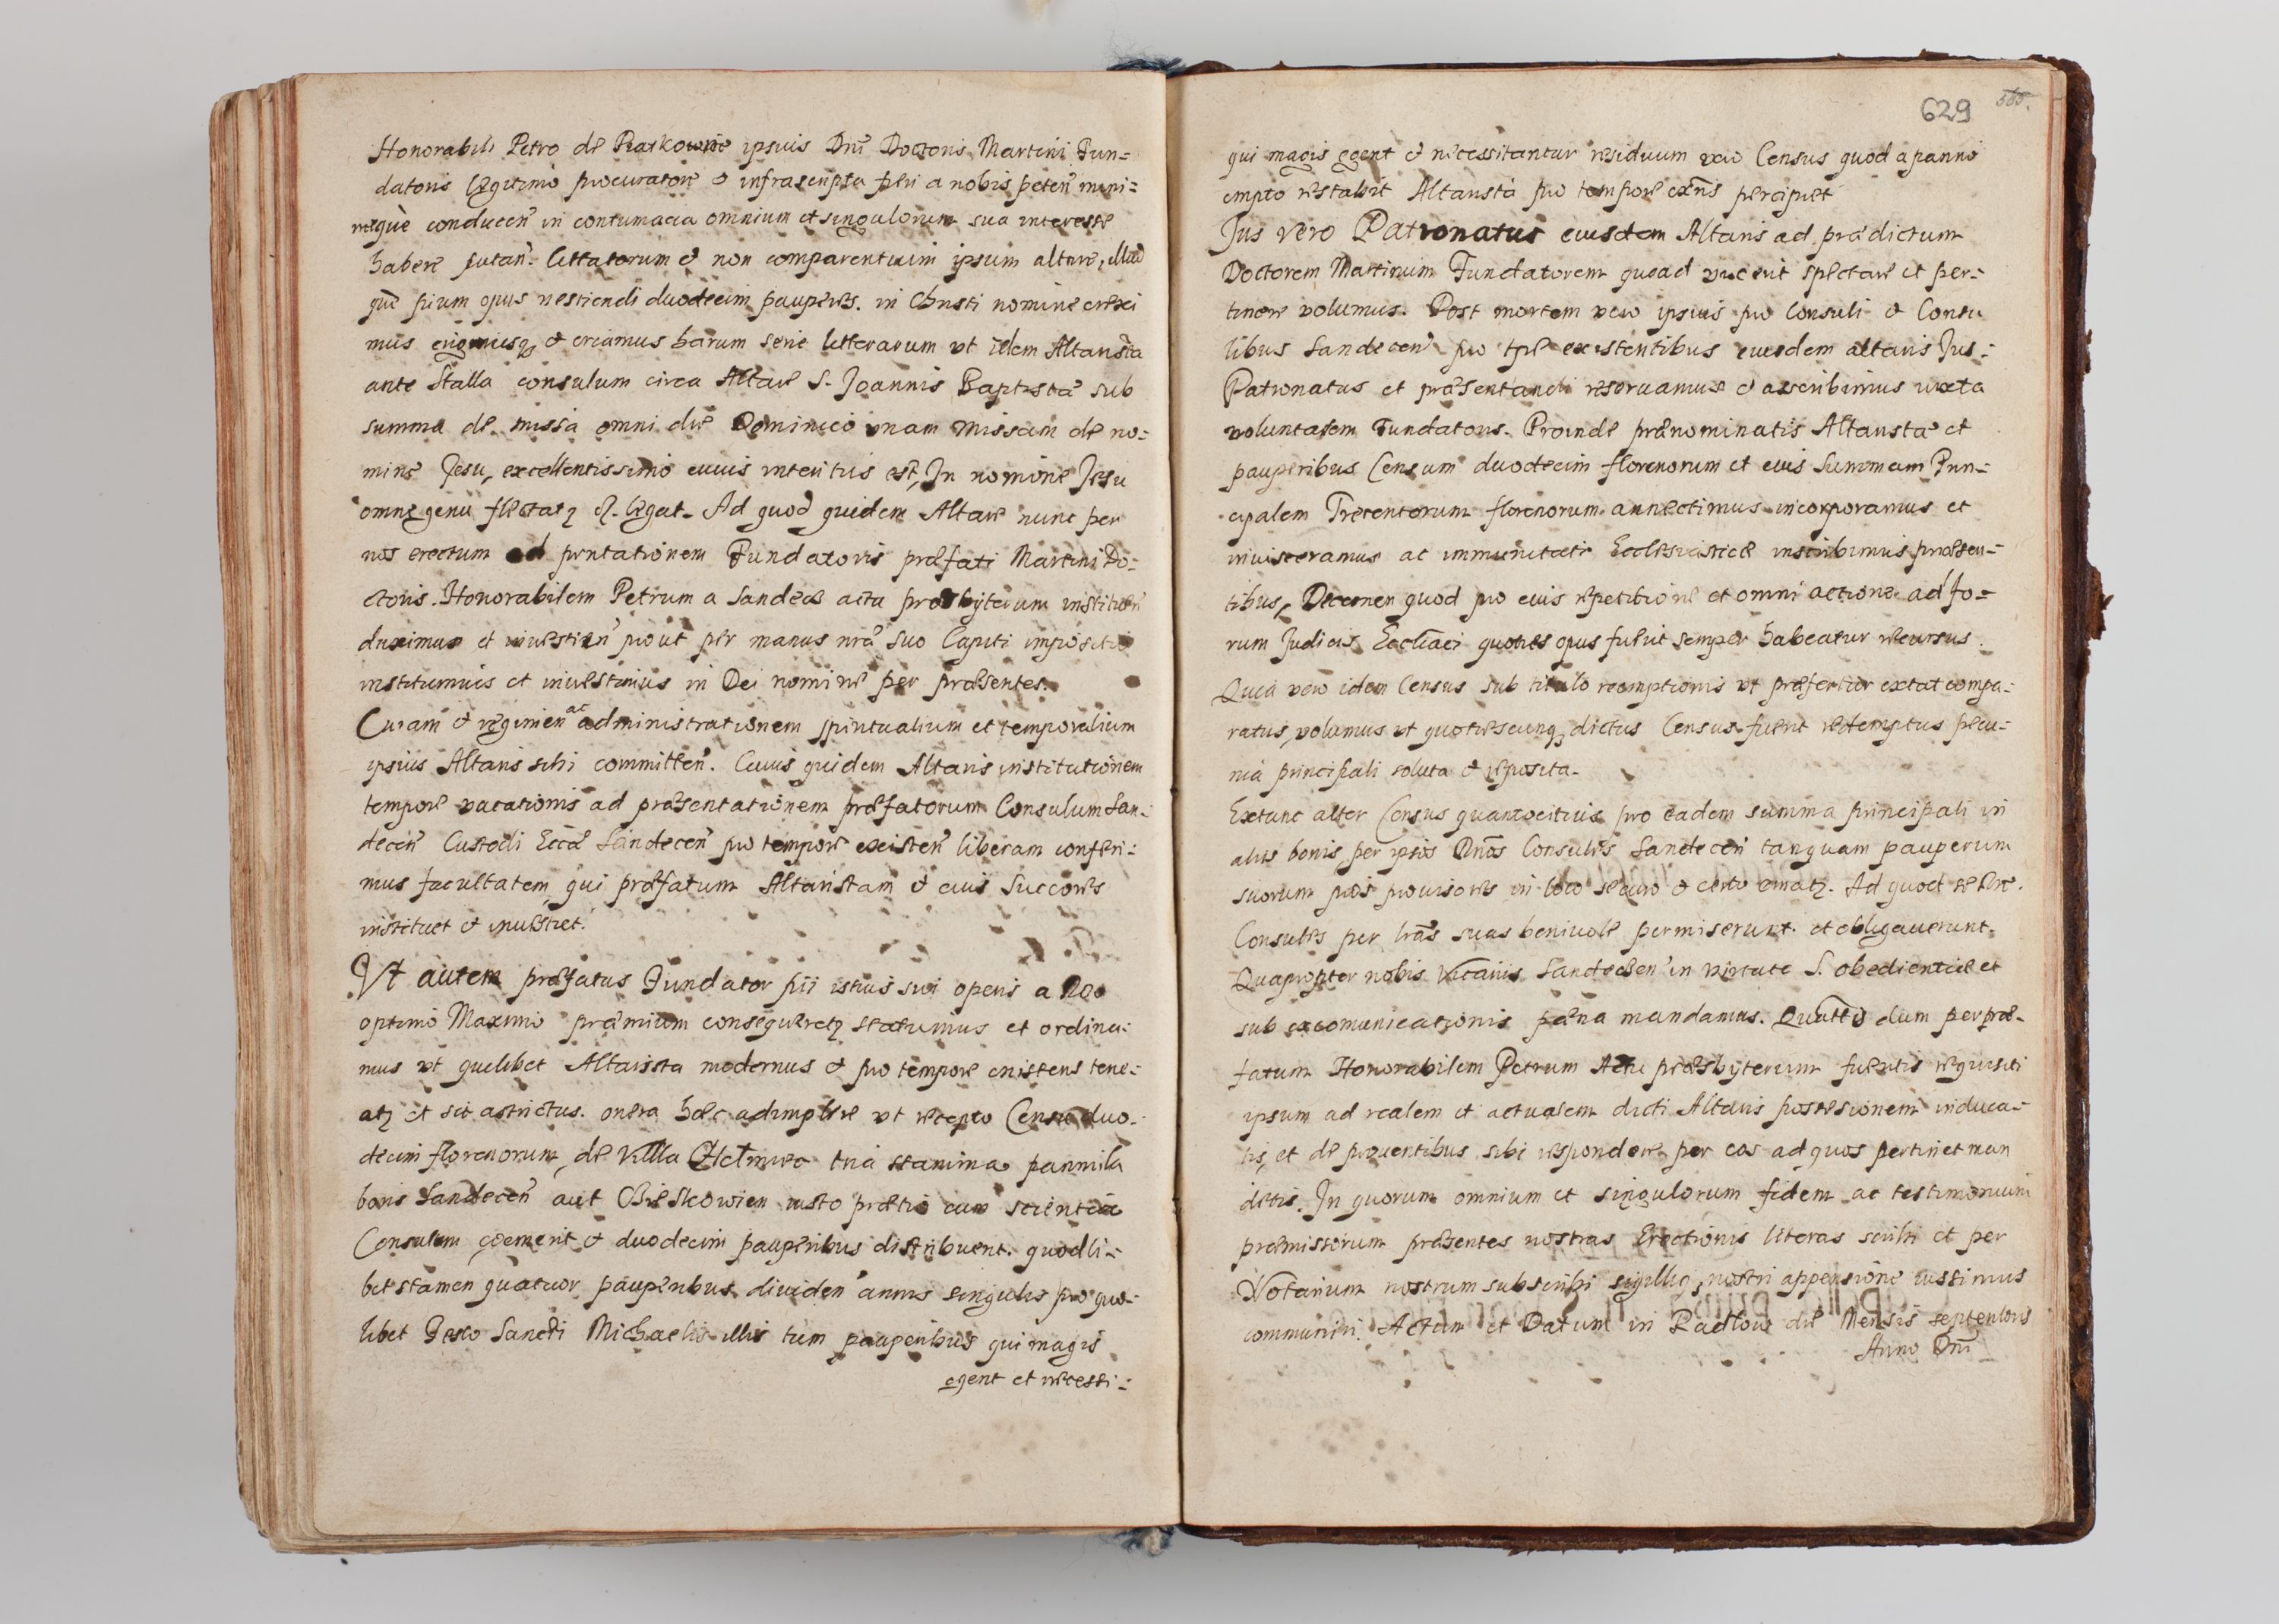 Honorabili Petro de Piaskowie ipsius Dnī Doctoris Martini Fun=
datoris legitimo procuratore & infrascripta fieri a nobis peteñ mini=
meque conduceñ in contumacia omnium et singulorum sua interesse
habere putañ. Cittatorum & non comparentium ipsum altare, illud
que pium opus vestiendi duodecim pauperes. in Christi nomine erexi
mus erigimusq & creamus harum serie litterarum ut idem Altarista
ante Stalla consulum circa Altare S. Joannis Baptistæ sub
summa de missa omni die Dominico unam Missam de no:
mine Jesu, excellentissimo cuius interitus est, In nomine Jesu
omne genu flectatz legat. Ad quod quidem Altare nunc per
nos erectum ad pr̄ntationem Fundatoris præfati Martini Do:
ctoris. Honorabilem Petrum a Sandecz actu præsbyterum instituen̄
duximus et investien̄ prout per manus nr̄a suo Capiti impositio
instituimus et investimus in Dei nomine per præsentes.
Curam & regimen ac administrationem spiritualium et temporalium
ipsius Altaris sibi committen̄. Cuius quidem Altaris institutionem
tempore vacationis ad præsentationem præfatorum Consulum San:
decen̄ Custodi Eccæ Sandecen̄ pro tempore existen̄ liberam conferi:
mus facultatem, qui præfatum Altaristam & eius Succores
instituet & investiet.
Ut autem præfatus Fundator pii istius sui operis a Deo
optimo Maximo præmium consequeretz statuimus et ordina:
mus ut quelibet Altarista modernus & pro tempore existens tene:
atz et sit astrictus. onera hæc adimplere ut recepto Censu duo:
decim florenorum, de Villa Chelmiec tria stamina panni la
boris Sandecen̄ aut Bieskowien iusto pretio cum scientia
Consulum coemerit & duodecim pauperibus distribuent. quodli:
bet stamen quatuor pauperibus dividen̄ annis singulis pro quo:
libet Festo Sancti Michaelis illis tum pauperibus qui magis
egent et necessi:
629 565.
qui magis egent & necessitantur residuum vero Census quod a panno
empto restabit Altarista pro tempore exn̄s percipiet
Jus vero Patronatus eiusdem Altaris ad prædictum
Doctorem Martinum Fundatorem quoad vixerit spectare et per:
tinere volumus. Post mortem vero ipsius pro Consuli & Consu
libus Sandecen̄ pro tpr̄e existentibus eiusdem altaris Jus:
Patronatus et præsentandi reservamus & ascribimus iuxta
voluntatem Fundatoris. Proinde prænominatis Altarista et
pauperibus Censum duodecim florenorum et eius Summam Prin:
cipalem Trecentorum florenorum annectimus incorporamus et
invisceramus ac immunitati Ecclesiasticæ inscribimus præsen:
tibus, Decernen quod pro eius repetitione et omni actione ad fo=
rum Judicis Eccliaci quoties opus fuerit semper habeatur recursus.
Quia vero idem Census sub titulo reemptionis ut præfertur extat compa:
ratus, volumus ut quotiescunq dictus Census fuerit redemptus pecu:
nia principali soluta & reposita.
Extunc alter Census quantocitius pro eadem summa principali in
aliis bonis per ipsos Dn̄os Consules Sandecen̄ tanquam pauperum
suorum pios provisores in loco securo & certo ematz. Ad quod se
Consules per lr̄as suas benivole permiserunt. et obligaverunt.
Quapropter nobis Vicariis Sandecen̄ in virtute S. obedientiæ et
sub excomunicationis pæna mandamus. Quattus dum per præ:
fatum Honorabilem Petrum Actu præsbyterum fueritis requisiti
ipsum ad realem et actualem dicti Altaris possesionem induca:
tis, et de proventibus sibi respondere per eos ad quos pertinet man
detis. In quorum omnium et singulorum fidem ac testimonium
præmissorum præsentes nostras Erectionis literas scribi et per
Notarium nostrum subscribi sigilliq nostri appensione iussimus
communiri. Actum et Datum in Radlow die Mensis septembris
Anno Dn̄i